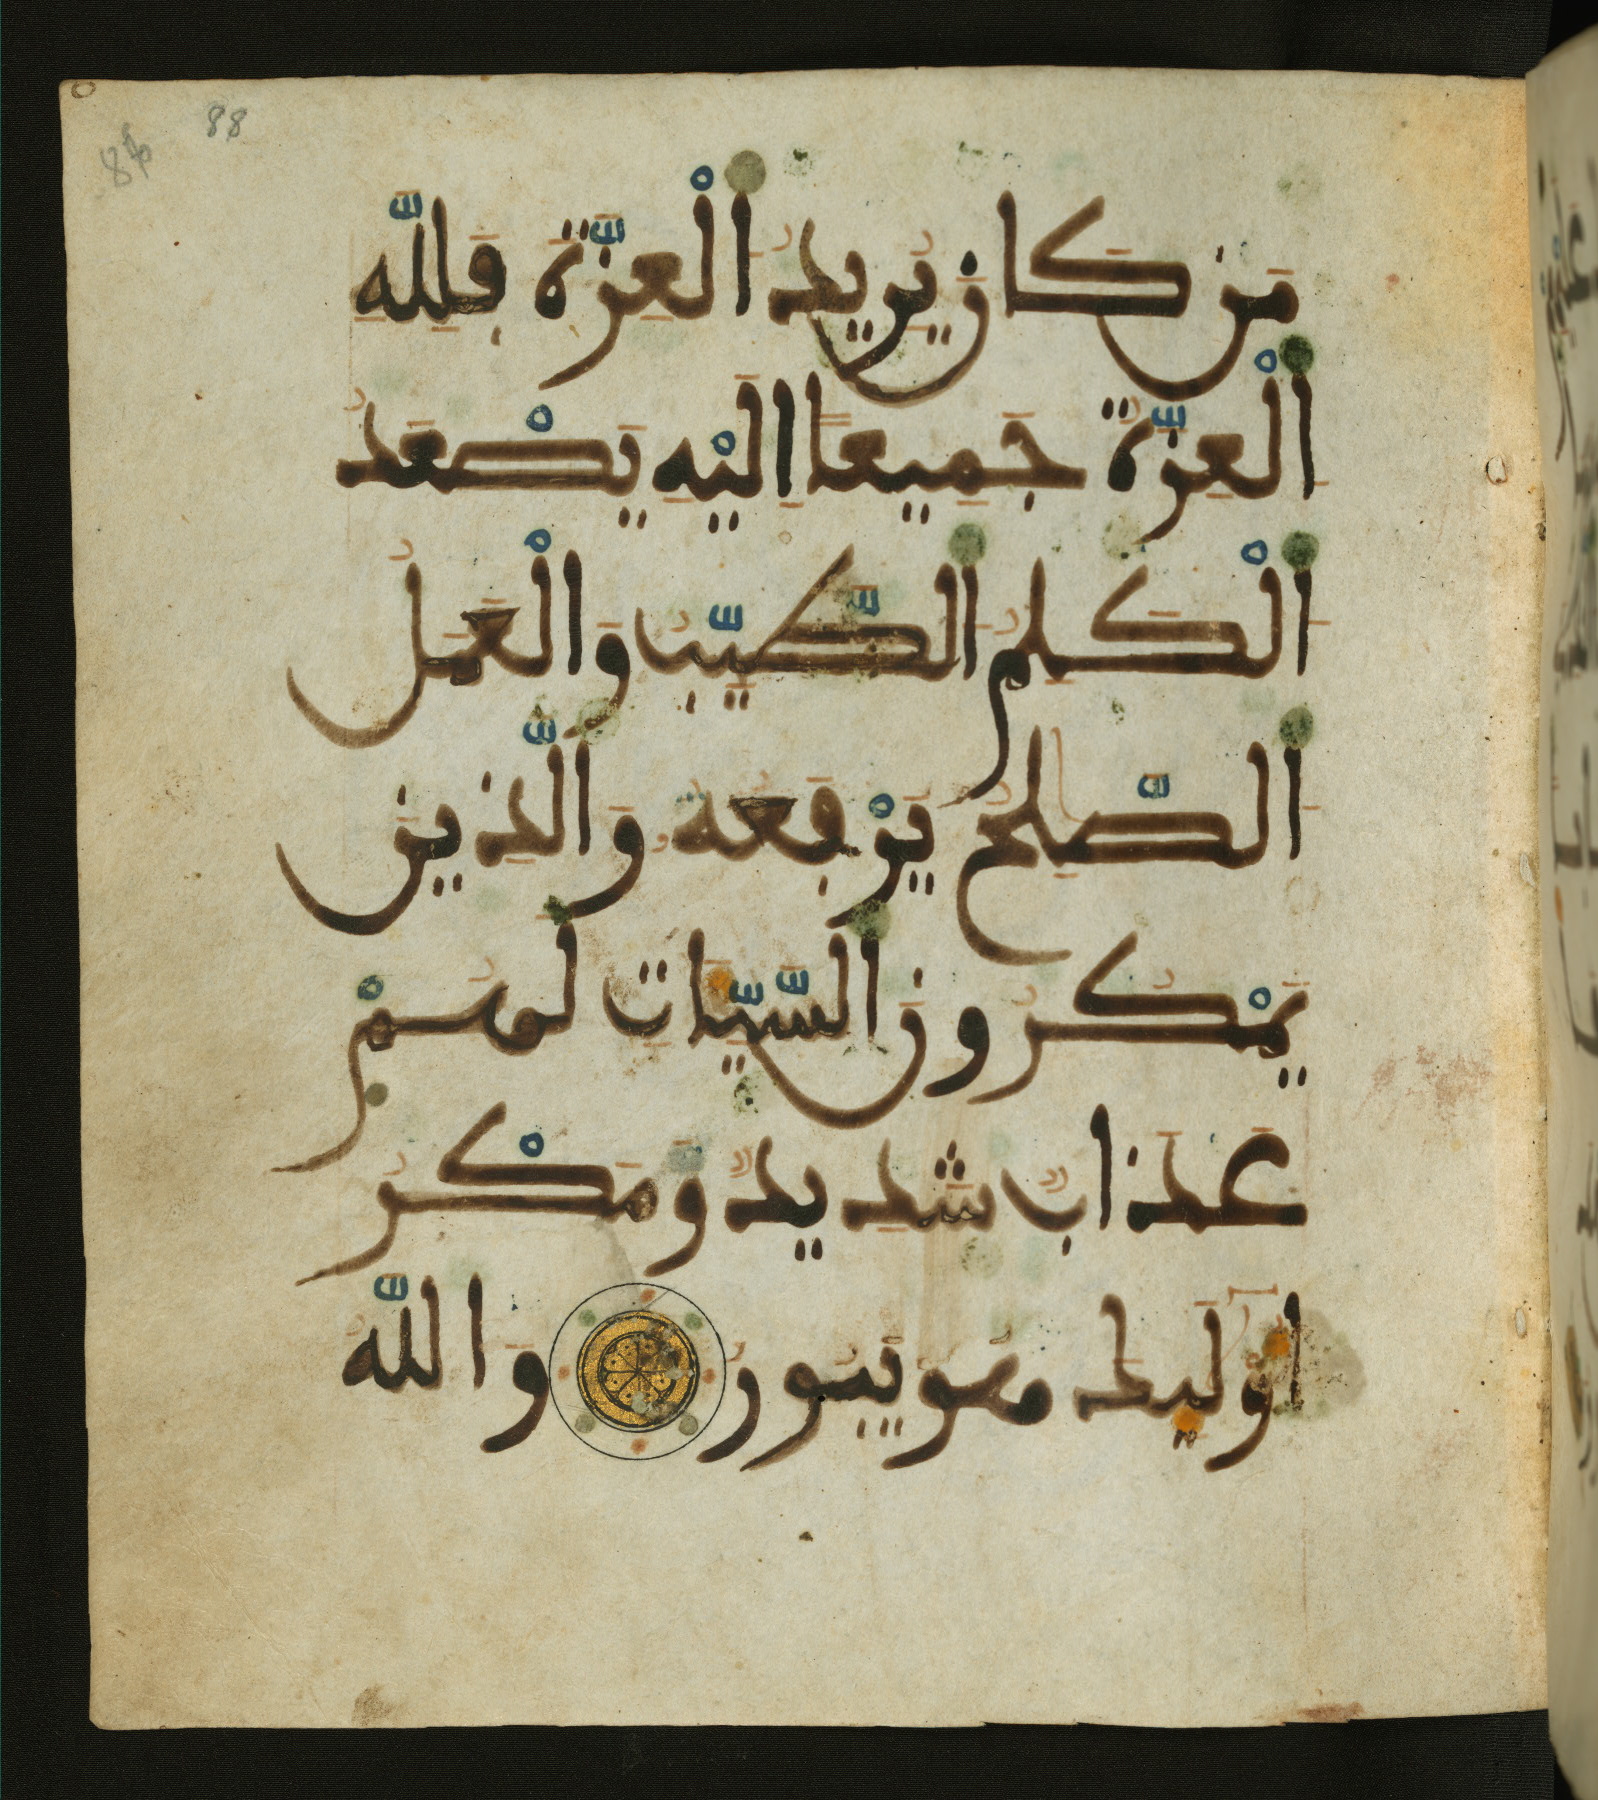 88
88
مَن كَانَ يُرِيدُ الْعِزَّةَ فَلِلَّهِ
الْعِزَّةُ جَمِيعًا إِلَيْهِ يَصْعَدُ
الْكَلِمُ الطَّيِّبُ وَالْعَمَلُ
الصَّلِحُ يَرْفَعُهُ وَالَّذِينَ
يَمْكُرُونَ السَّيِّـَاتِ لَهُمْ
عَذَابٌ شَدِيدٌ وَمَكْرُ
أُوْلَئِكَ هُوَ يَبُورُ وَاللَّهُ